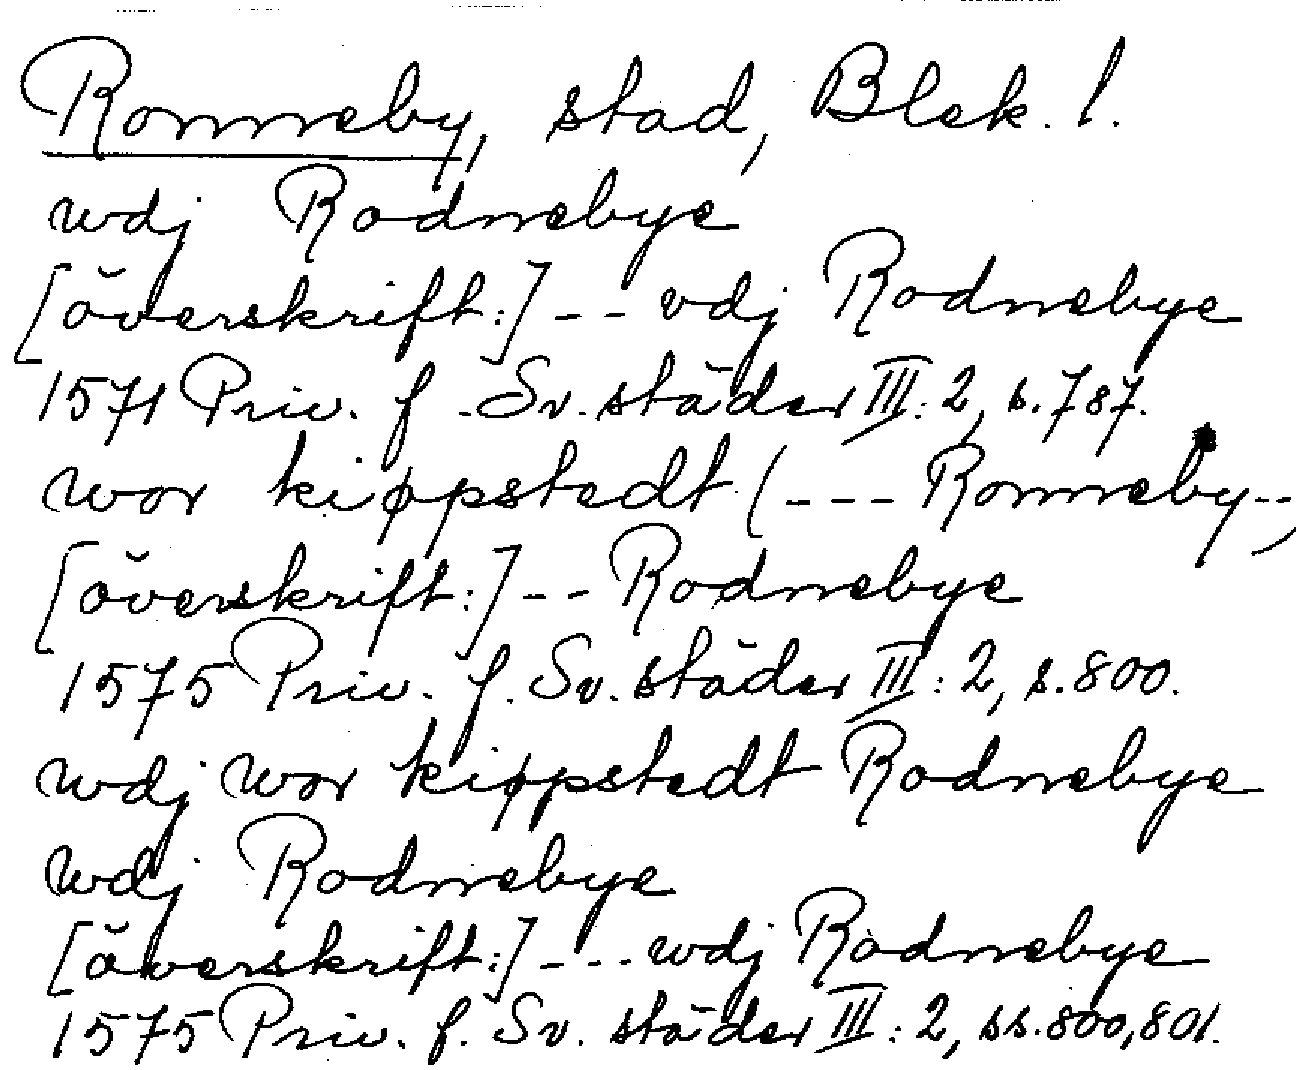 Ronneby, stad, Blek. l.
wdj Rodnebye
[överskrift:] -- vdj Rodnebye
1571 Priv. f. Sv. städer III: 2, s. 787.
wor kiøpstedt (--- Ronneby --)
[överskrift:] -- Rodnebye
1575 Priv. f. Sv. städer III: 2, s. 800.
wdj wor kiøpstedt Rodnebye
wdj Rodnebye
[överskrift:] --- wdj Rodnebye
1575 Priv. f. Sv. städer III: 2, ss. 800, 801.